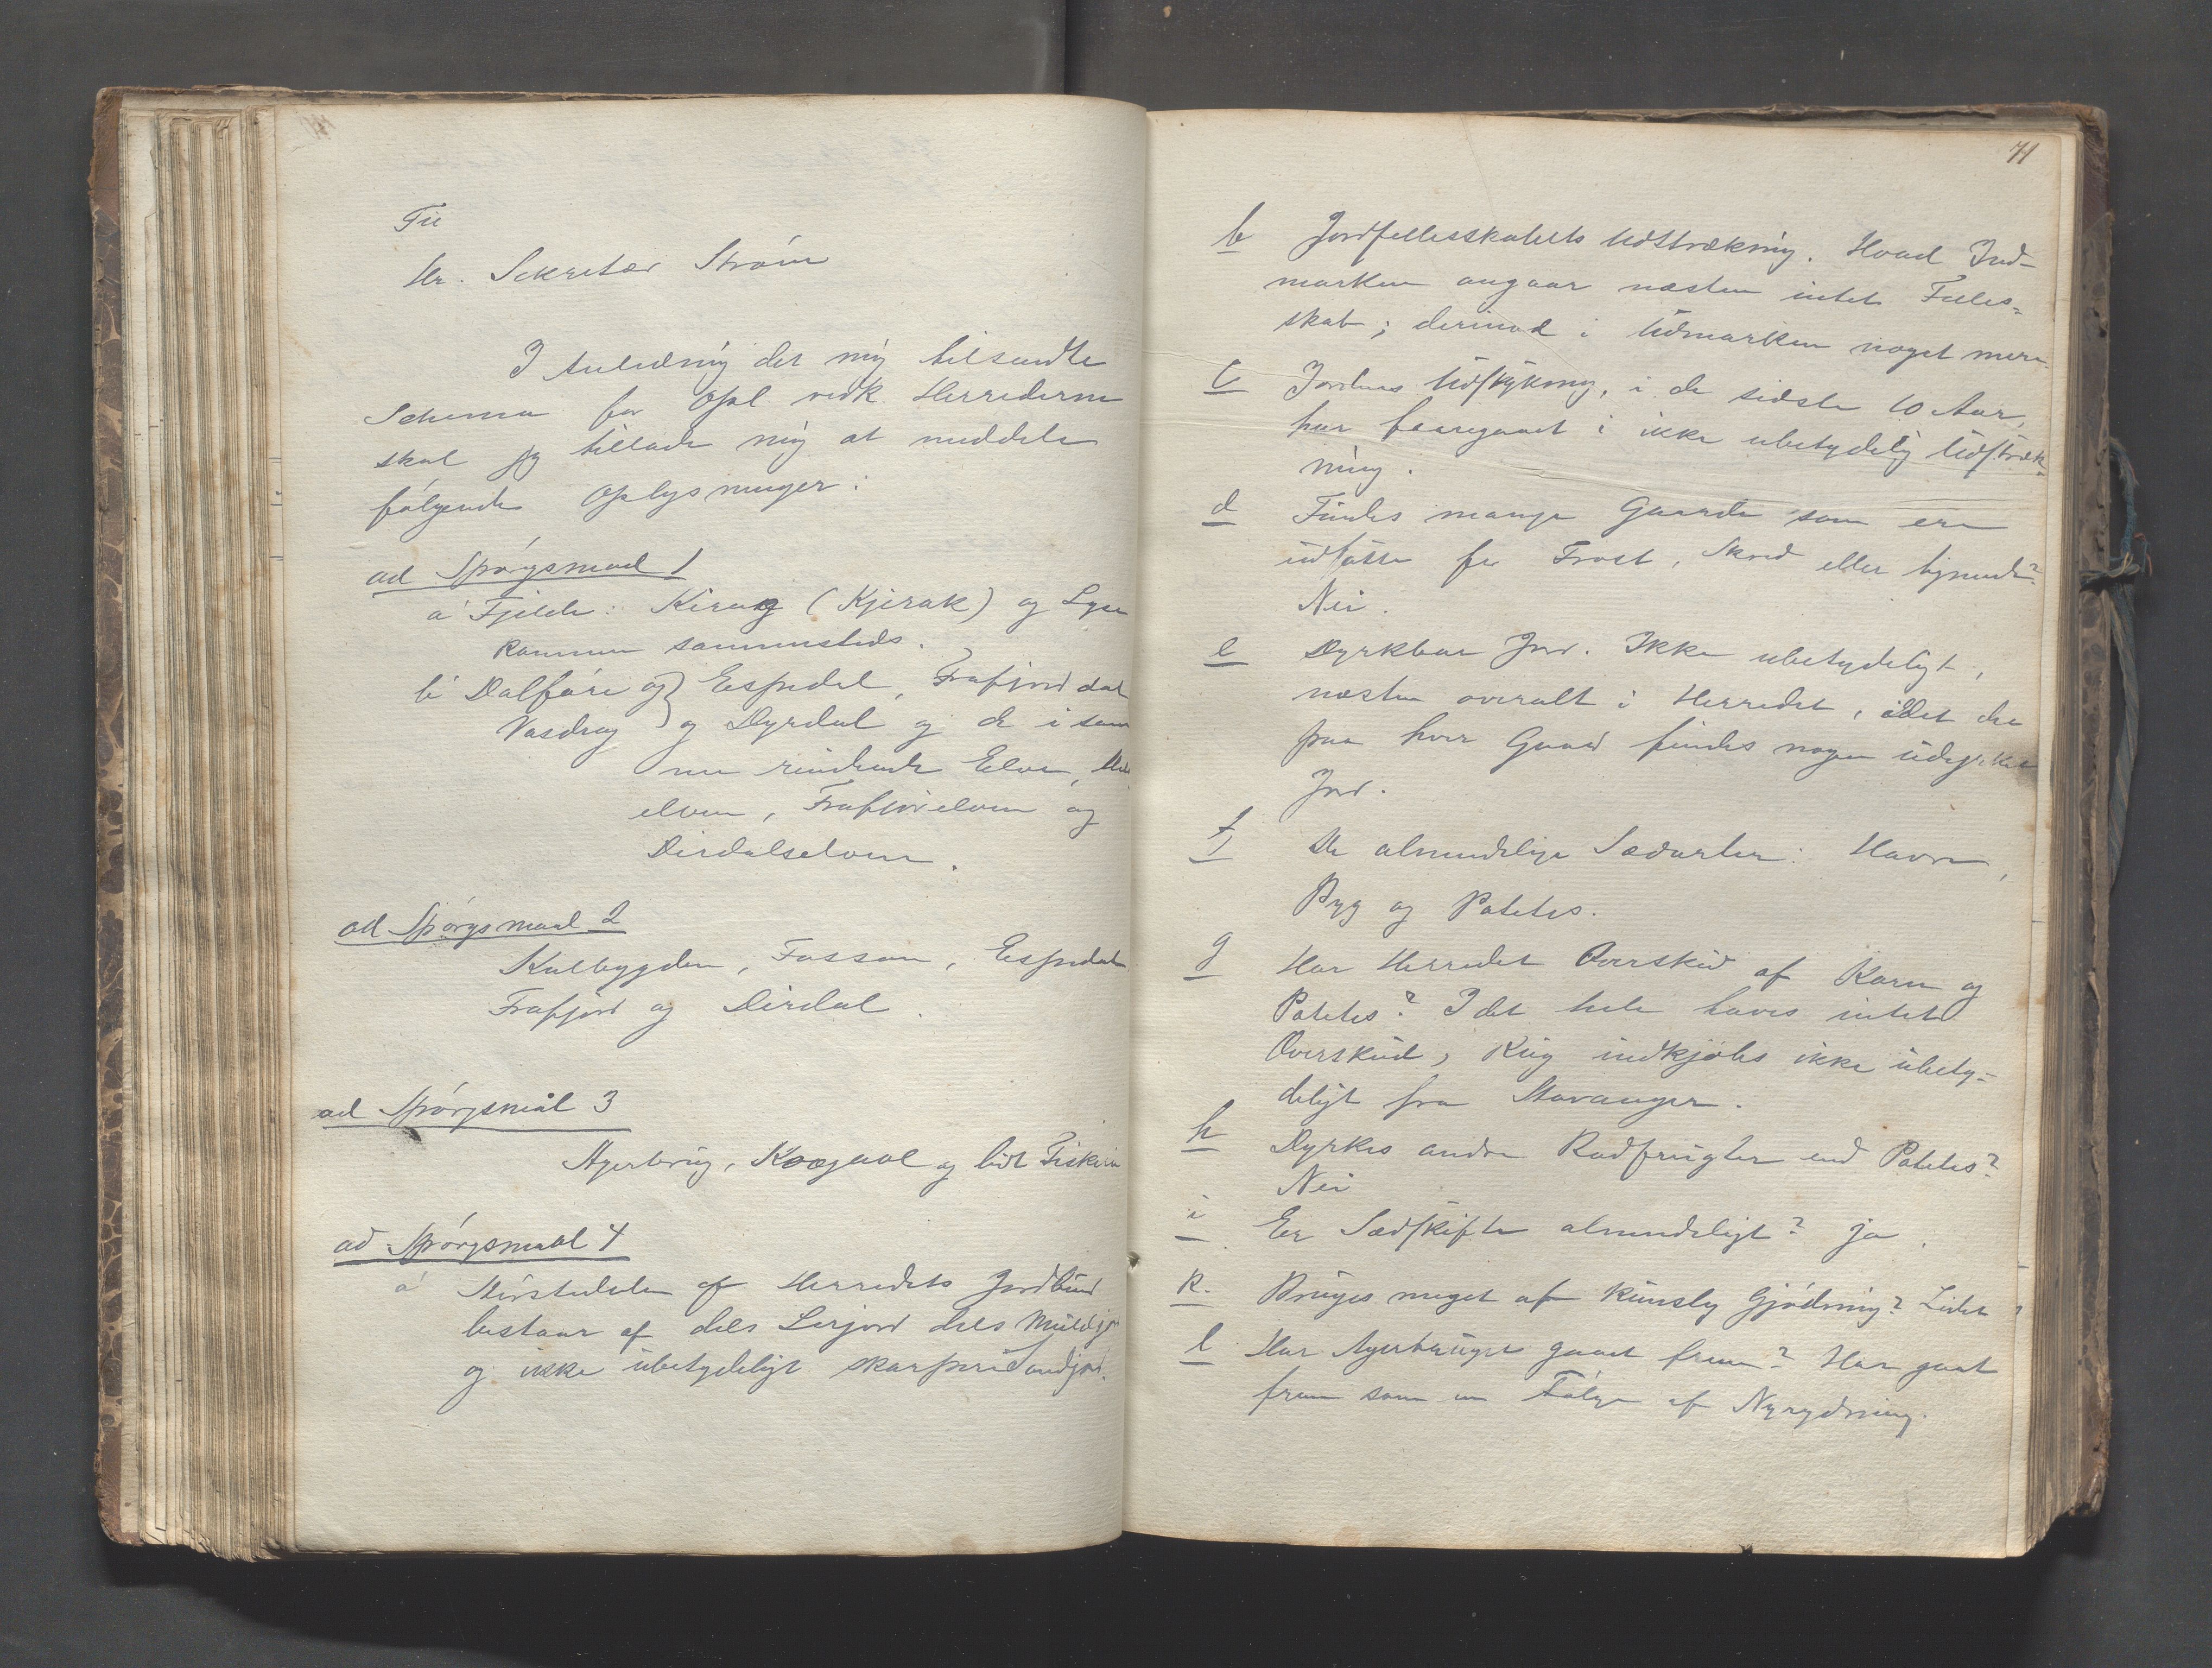 Til
Hr. Sekretær Strøm
I Anledning det mig tilsendte
Schema for Opl vedk. Herrederne
skal jeg tillade mig at meddele
følgende Oplysninger:
ad Spørgsmaal 1
a Fjelde: Kirag (Kjerak) og Lyse
Kammen sammesteds.
b Dalføre og } Espedal, Frafjord dal
Vasdrag } og Dyrdal og de i sam
me rindende Elve,
elven, Frafjordelven og
Dirdalselven.
ad Spørgsmaal 2
Kulbygden, Fossan, Espedal
Frafjord og Dirdal.
ad Spørgsmål 3
Agerbrug, Kvægavl og lidt Fiskeri
ad Spørgsmaal 4
a Størstedelen af Herredets Jordbund
bestaar af dels Lerjord dels Muldjor
og ikke ubetydeligt skarpere Sandjord.
71
b Jordfællesskabets Udstrækning. Hvad Ind-
marken angaar næsten intet Fælles-
skab; derimod i Udmarken noget mere
c Jordens Udstykning, i de sidste 10 Aar,
har foregaaet i ikke ubetydelig Udstræk-
ning.
d Findes mange Gaarde som ere
udsatte for Frost, Skred eller lignende?
Nei.
e Dyrkbar Jord. Ikke ubetydeligt,
næsten overalt i Herredet, idet der
paa hver Gaard findes nogen udyrket
Jord.
f De almindelige Sædarter: Havre,
Byg og Potetes.
g Har Herredet Overskud af Korn og
Potetes? I det hele haves intet
Overskud, Rug indkjøbes ikke ubety-
deligt fra Stavanger.
h Dyrkes andre Rodfrugter end Potetes?
Nei
i Er Sædskifte almindeligt? Ja.
k. Bruges meget af kunstig Gjødning? Lidet
l Har Agerbruget gaaet frem? Har gaat
frem som en Følge af Nyrydning.